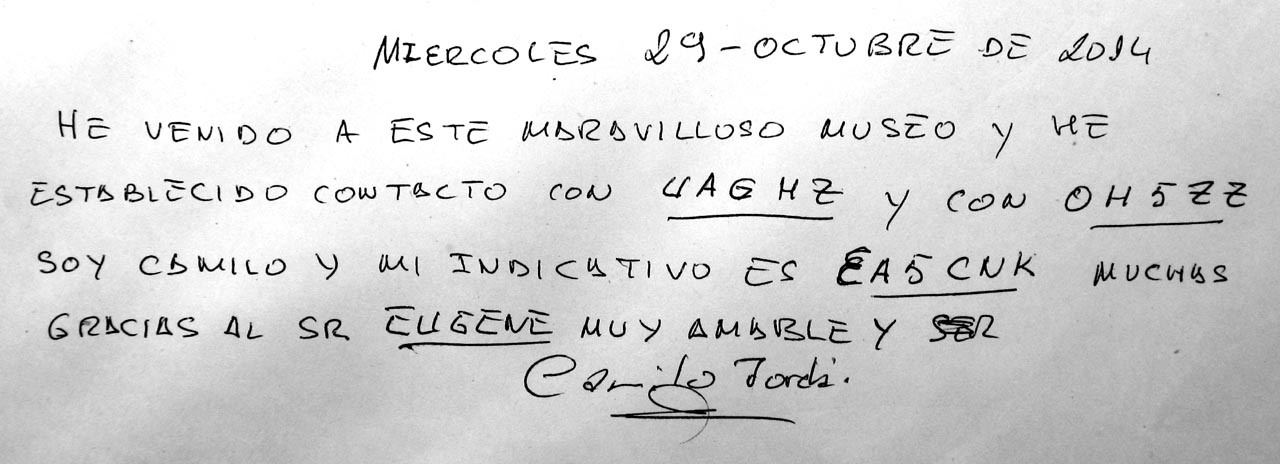 MIERCOLES 29-OCTUBRE DE 2014
HE VENIDO A ESTE MARAVILLOSO MUSEO Y HE
ESTABLECIDO CONTACTO CON UAGHZ Y CON OH5ZZ
SOY CAMILO Y MI INDICATIVO ES EA5CNK MUCHAS
GRACIAS AL SR EUGENE MUY AMABLE Y
Camilo Jordá.